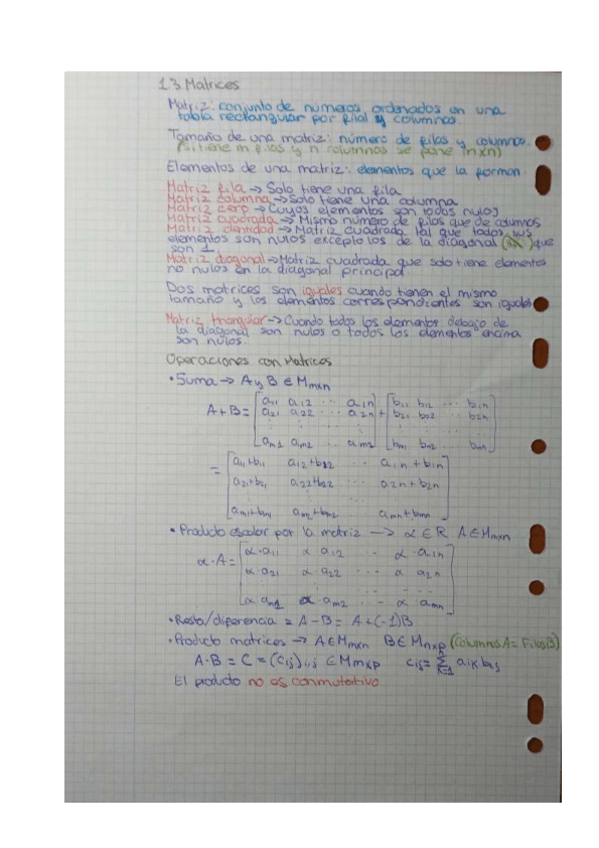 1.3. Matrices
Matriz: conjunto de números ordenados en una
tabla rectangular por filas y columnas.
Tamaño de una matriz: número de filas y columnas.
(Si tiene m filas y n columnas se pone (nxn)
Elementos de una matriz: elementos que la forman
Matriz fila → Solo tiene una fila
Matriz columna → Solo tiene una columna
Matriz cero → Cuyos elementos son todos nulos
Matriz cuadrada → Mismo número de filas que de columnas
Matriz identidad → Matriz cuadrada tal que todos sus
elementos son nulos excepto los de la diagonal que
son 1.
Matriz diagonal → Matriz cuadrada que solo tiene elementos
no nulos en la diagonal principal
Dos matrices son iguales cuando tienen el mismo
tamaño y los elementos correspondientes son iguales
Matriz triangular → Cuando todos los elementos debajo de
la diagonal son nulos o todos los elementos encima
son nulos.
Operaciones con Matrices
• Suma → A y B ∈ Mmxn
A+B = [a11 a12 ... a1n] + [b11 b12 ... b1n]
a21 a22 ... a2n b21 b22 ... b2n
am1 am2 ... am2 bm1 bm2 ... bmn
= [a11+b11 a12+b12 ... a1n+b1n]
a21+b21 a22+b22 ... a2n+b2n
am1+bm1 am2+bm2 ... amn+bmn
• Producto escalar por la matriz → α ∈ R A ∈ Mmxn
α·A = [α·a11 α a12 ... α·a1n]
α·a21 α a22 ... α a2n
α am1 α·am2 ... α amn
• Resta/diferencia = A-B = A+(-1)B
• Producto matrices → A∈Mmxn B∈Mnxp (Columnas A = Filas B)
A·B = C = (cij)i,j ∈ Mmxp cij = Σ k=1 aik bkj
El producto no es conmutativo